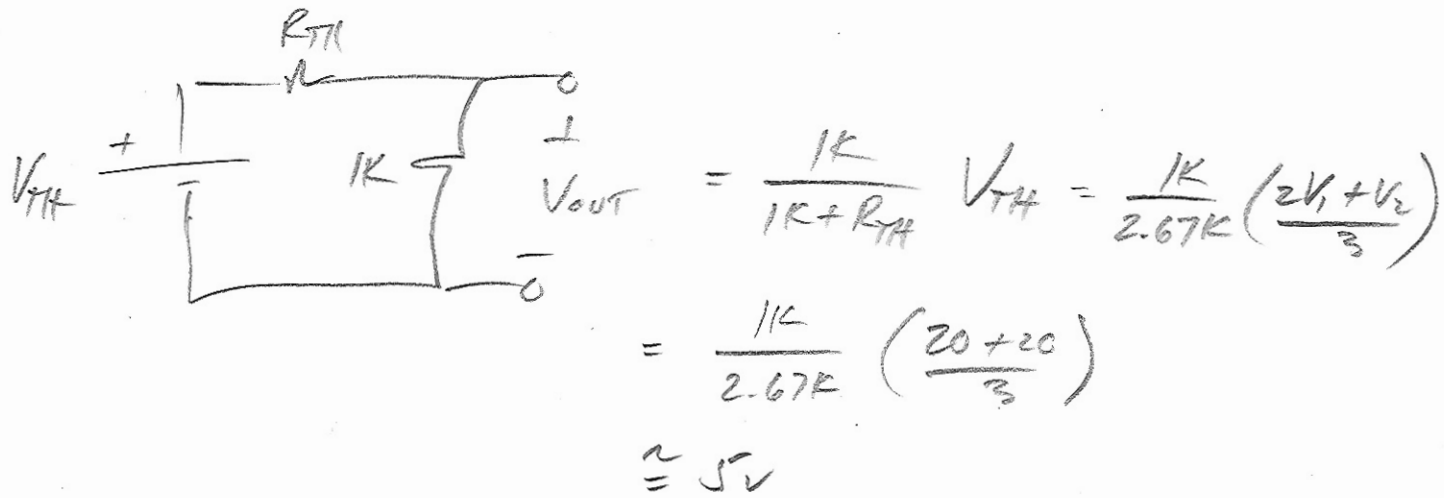 R_TH
+
V_TH
1K
+
V_OUT
-
= 1K / (1K + R_TH) V_TH = 1K / 2.67K ( (2V₁ + V₂) / 3 )
= 1K / 2.67K ( (20 + 20) / 3 )
≅ 5V